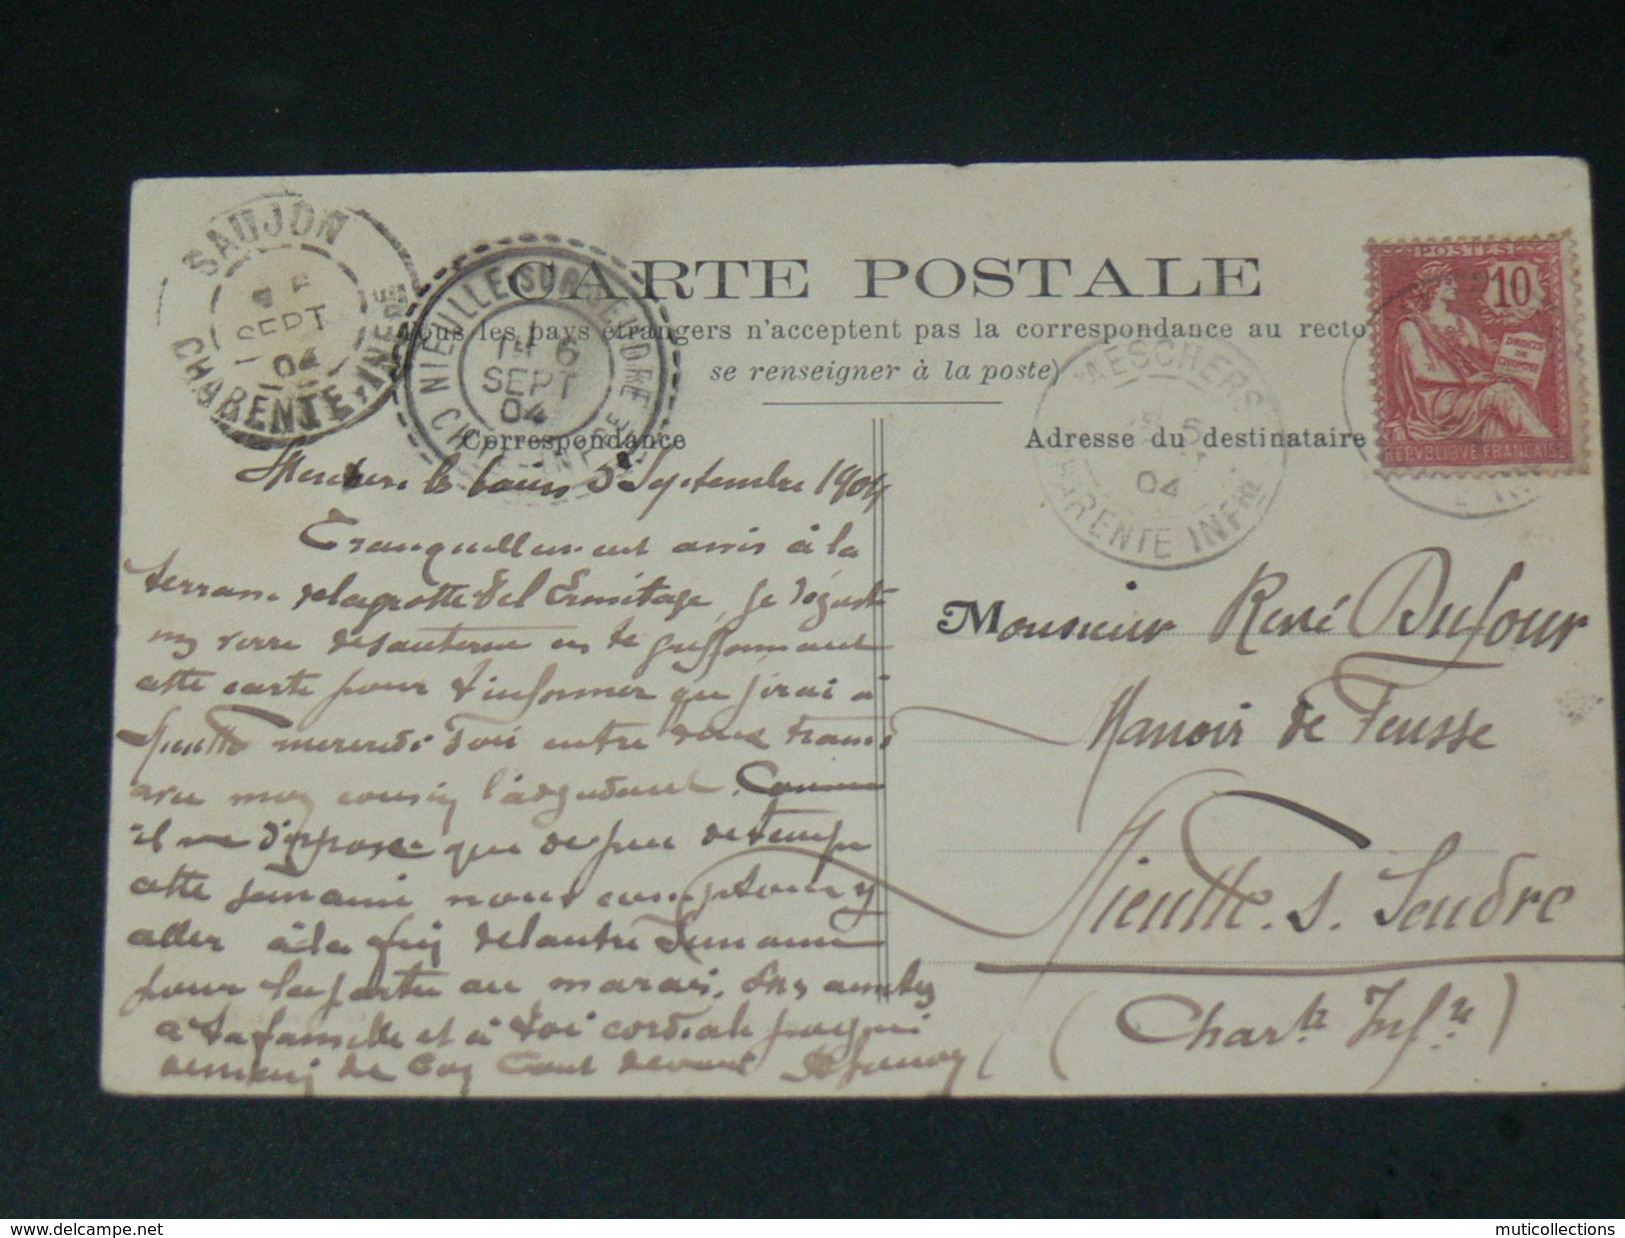 SAUJON
SEPT
04
CHARENTE-INFRE
NIEULLE SUR SEUDRE
6
SEPT
04
CARTE POSTALE
Tous les pays étrangers n'acceptent pas la correspondance au recto
se renseigner à la poste)
Correspondance
Adresse du destinataire
MESCHERS
5
04
CHARENTE INFRE
POSTES
10
DROITS DE L'HOMME
REPVBLIQVE FRANÇAISE
les bains 5 Septembre 1904
Tranquillement assis à la
terrasse de la grotte de l'Ermitage, je déguste
un verre de sauterne en te griffonnant
cette carte pour t'informer que j'irai à
Nieulle mercredi soir entre deux trains
avec mon cousin l'adjudant. Comme
il ne dispose que de peu de temps
cette semaine nous comptons y
aller à la fin de l'autre semaine
pour la partie au marais.
à ta famille et à toi cordiale poignée
de main de ton tout dévoué
Monsieur René Dufour
Manoir de Feusse
Nieulle s. Seudre
(Charte Infre)
muticollections